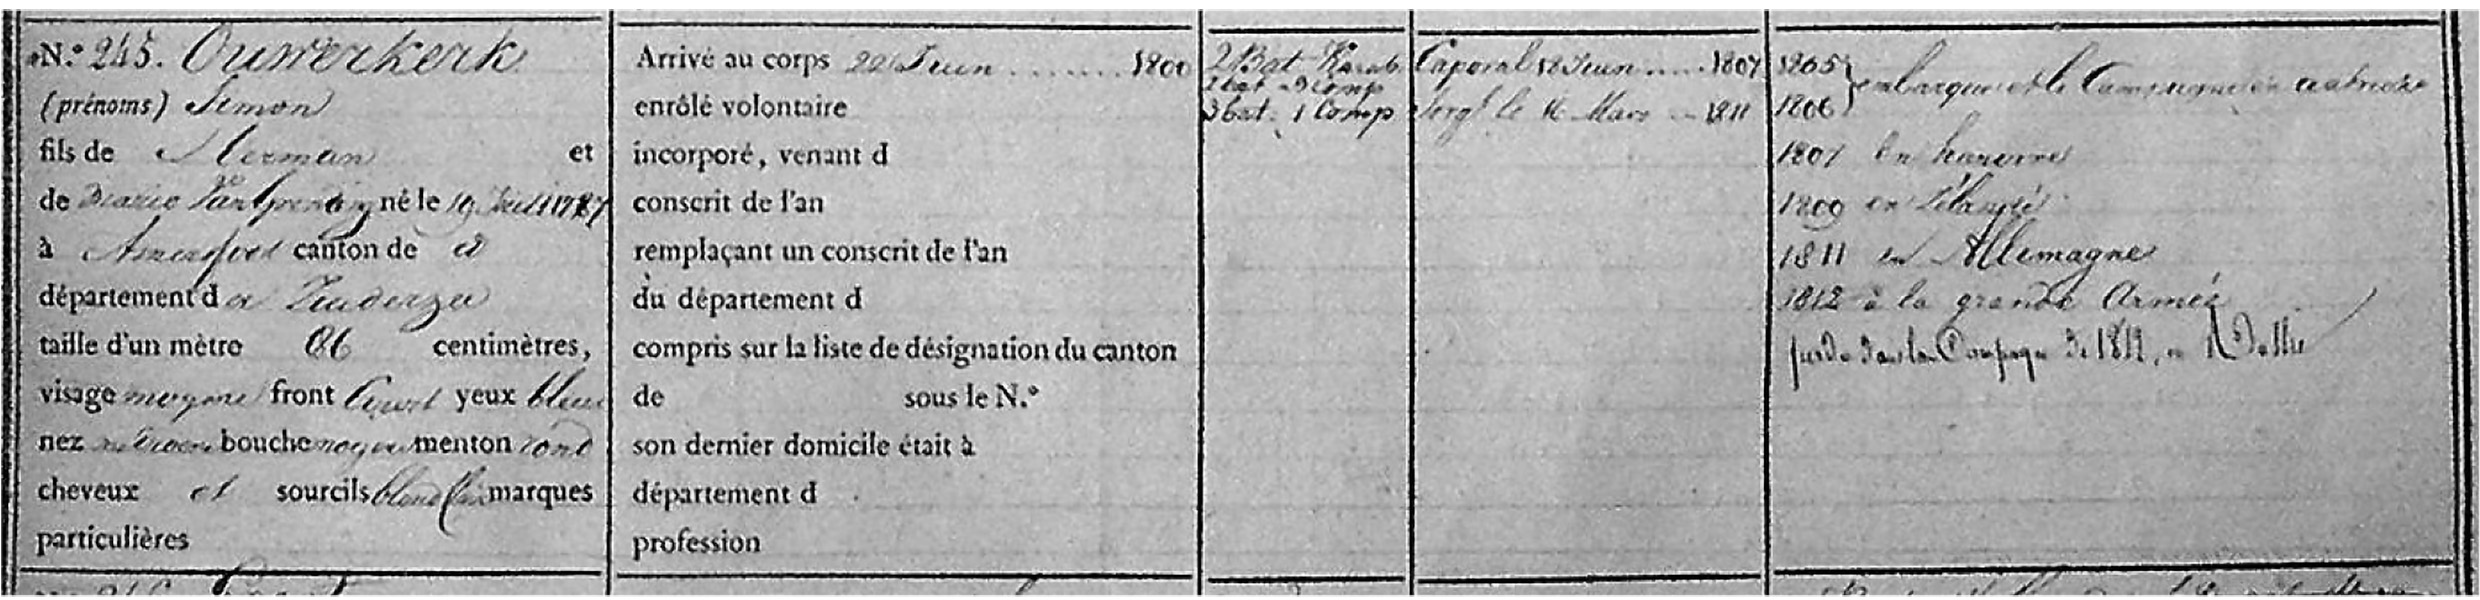 N.° 245. Ouwerkerk
(prénoms) Simon
fils de Herman et
de Marie né le 19
à Amersfort canton de id
département d u Zuiderzee
taille d'un mètre 86 centimètres,
visage moyen front Court yeux bleu
nez moyen bouche moyen menton rond
cheveux et sourcils blond marques
particulières
Arrivé au corps 22 Juin ........ 1800
enrôlé volontaire
incorporé, venant d
conscrit de l'an
remplaçant un conscrit de l'an
du département d
compris sur la liste de désignation du canton
de sous le N.°
son dernier domicile était à
département d
profession
2 Bat Karab
2 bat 3 comp
3 bat. 1 Comp
Caporal 18 Juin ..... 1807
Sergt le 16 Mars 1811
1805 } embarque et la Campagne en autriche
1806
1807 en hanovre
1809 en Zélande
1811 en Allemagne
1812 à la grande Armée
perdu dans la Campagne de 1812, en